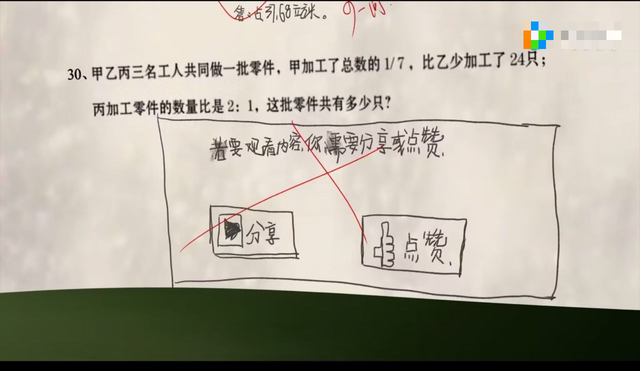 售:占31.68立方米。
30、甲乙丙三名工人共同做一批零件，甲加工了总数的1/7，比乙少加工了24只；
丙加工零件的数量比是2：1，这批零件共有多少只？
若要观看内容,你需要分享或点赞.
分享
点赞.